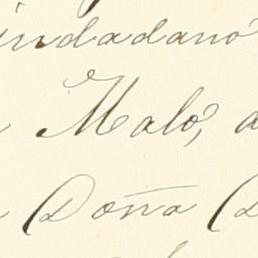 indadano
Malo,
Doña